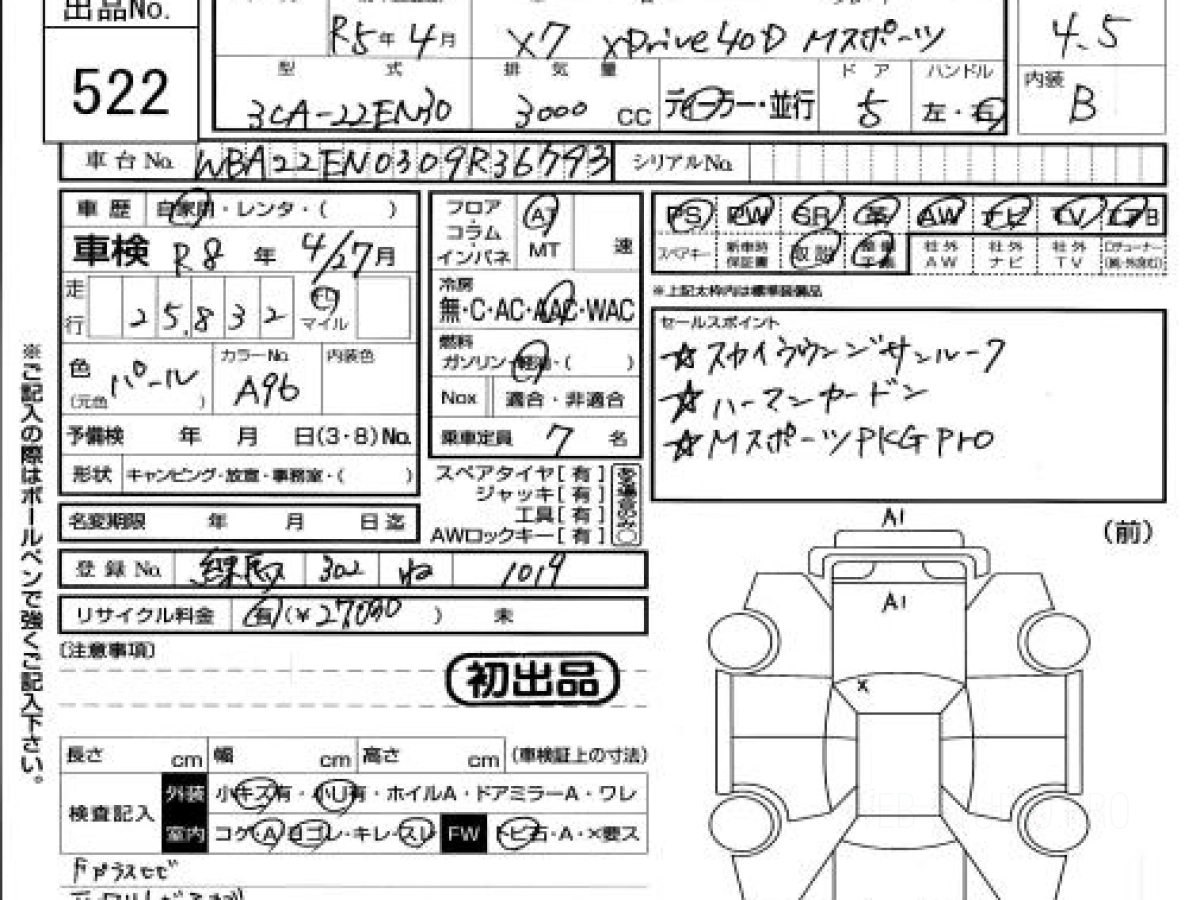 出品No.
522
R5年 4月
X7 xDrive40D Mスポーツ
4.5
型式
排気量
ドア
ハンドル
内装
3CA-22EN30
3000 CC
ディーラー・並行
5
左・右
B
車台No. WBA22EN0309R36793
シリアルNo.
車歴 自家用・レンタ・( )
車検 R8年 4/27月
走行 25,832 km マイル
色 (元色 ) パール
カラーNo. A96
内装色
予備検 年 月 日(3・8)No.
形状 キャンピング・放宣・事務室・( )
名変期限 年 月 日迄
フロア・コラム・インパネ
AT
MT
速
冷房
無・C・AC・AAC・WAC
燃料
ガソリン・軽油・( )
Nox 適合・非適合
乗車定員 7 名
スペアタイヤ[有]
ジャッキ[有]
工具[有]
AWロックキー[有]
ある場合のみ○
PS PW SR 革 AW ナビ TV エアB
スペアキー 新車時保証書 取説 整備手帳 社外AW 社外ナビ 社外TV
※上記太枠内は標準装備品
セールスポイント
☆スカイラウンジサンルーフ
☆ハーマンカードン
☆MスポーツPKG Pro
登録No. 練馬 302 ね 1019
リサイクル料金 有(¥27,030 ) 未
(注意事項)
初出品
長さ cm 幅 cm 高さ cm (車検証上の寸法)
検査記入
外装 小キズ有・小U有・ホイルA・ドアミラーA・ワレ
室内 コゲ・A・ヨゴレ・キレ・スレ
FW トビ石・A・×要ス
Fガラスヒビ
(前)
A1
A1
x
※ご記入の際はボールペンで強くご記入下さい。